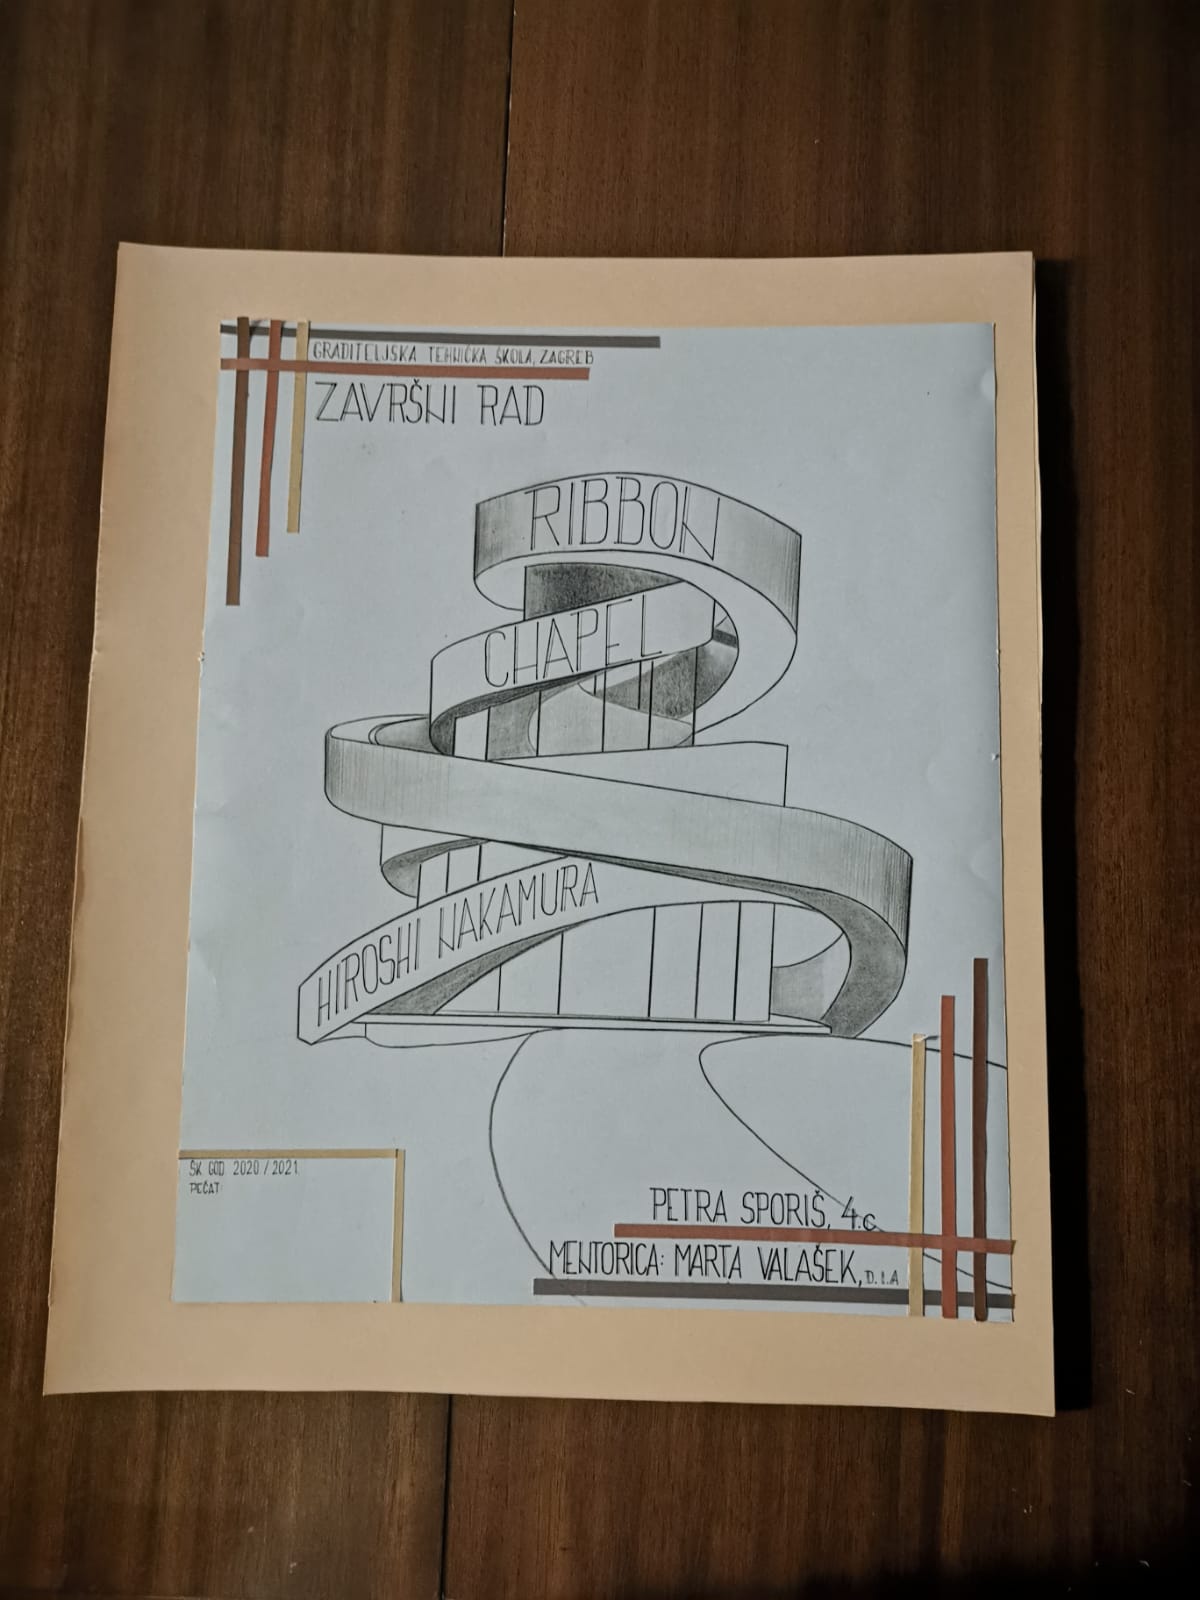 GRADITELJSKA TEHNIČKA ŠKOLA, ZAGREB
ZAVRŠNI RAD
RIBBON
CHAPEL
HIROSHI NAKAMURA
ŠK. GOD. 2020/2021.
PEČAT:
PETRA SPORIŠ, 4.c
MENTORICA: MARTA VALAŠEK, D.I.A